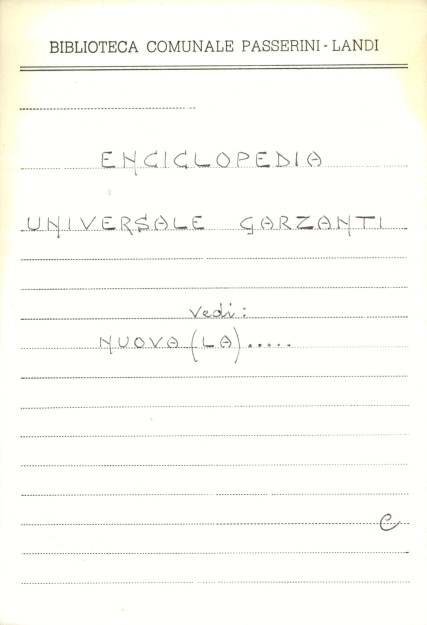 BIBLIOTECA COMUNALE PASSERINI - LANDI
ENCICLOPEDIA
UNIVERSALE GARZANTI
vedi:
NUOVA (LA).....
C